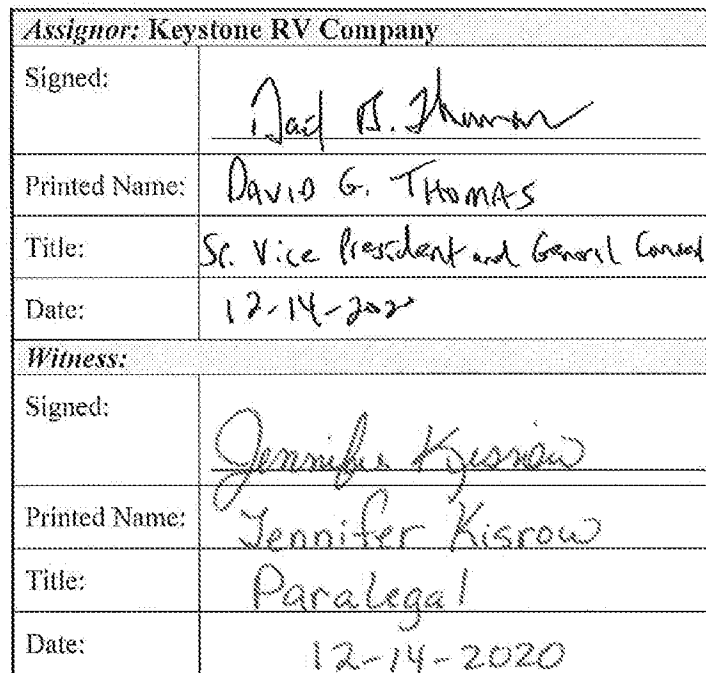 Assignor: Keystone RV Company
Signed: David G. Thomas
Printed Name: DAVID G. THOMAS
Title: Sr. Vice President and General Counsel
Date: 12-14-2020
Witness:
Signed: Jennifer Kisrow
Printed Name: Jennifer Kisrow
Title: Paralegal
Date: 12-14-2020